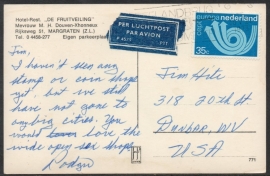 Hotel-Rest. „DE FRUITVEILING"
Mevrouw M. H. Douwen-Xhonneux
Rijksweg 51, MARGRATEN (Z.L.)
Tel. 0 4458-277 Eigen parkeerplaats
PER LUCHTPOST
PAR AVION
europa nederland
35c
Jim,
I haven't seen any
stamp or coin shops
yet, but we still
have not gone to
any big cities. You
would love the
wide open sex shops
Rodger
Jim Hill
318 20th St
Dunbar, WV
USA
771